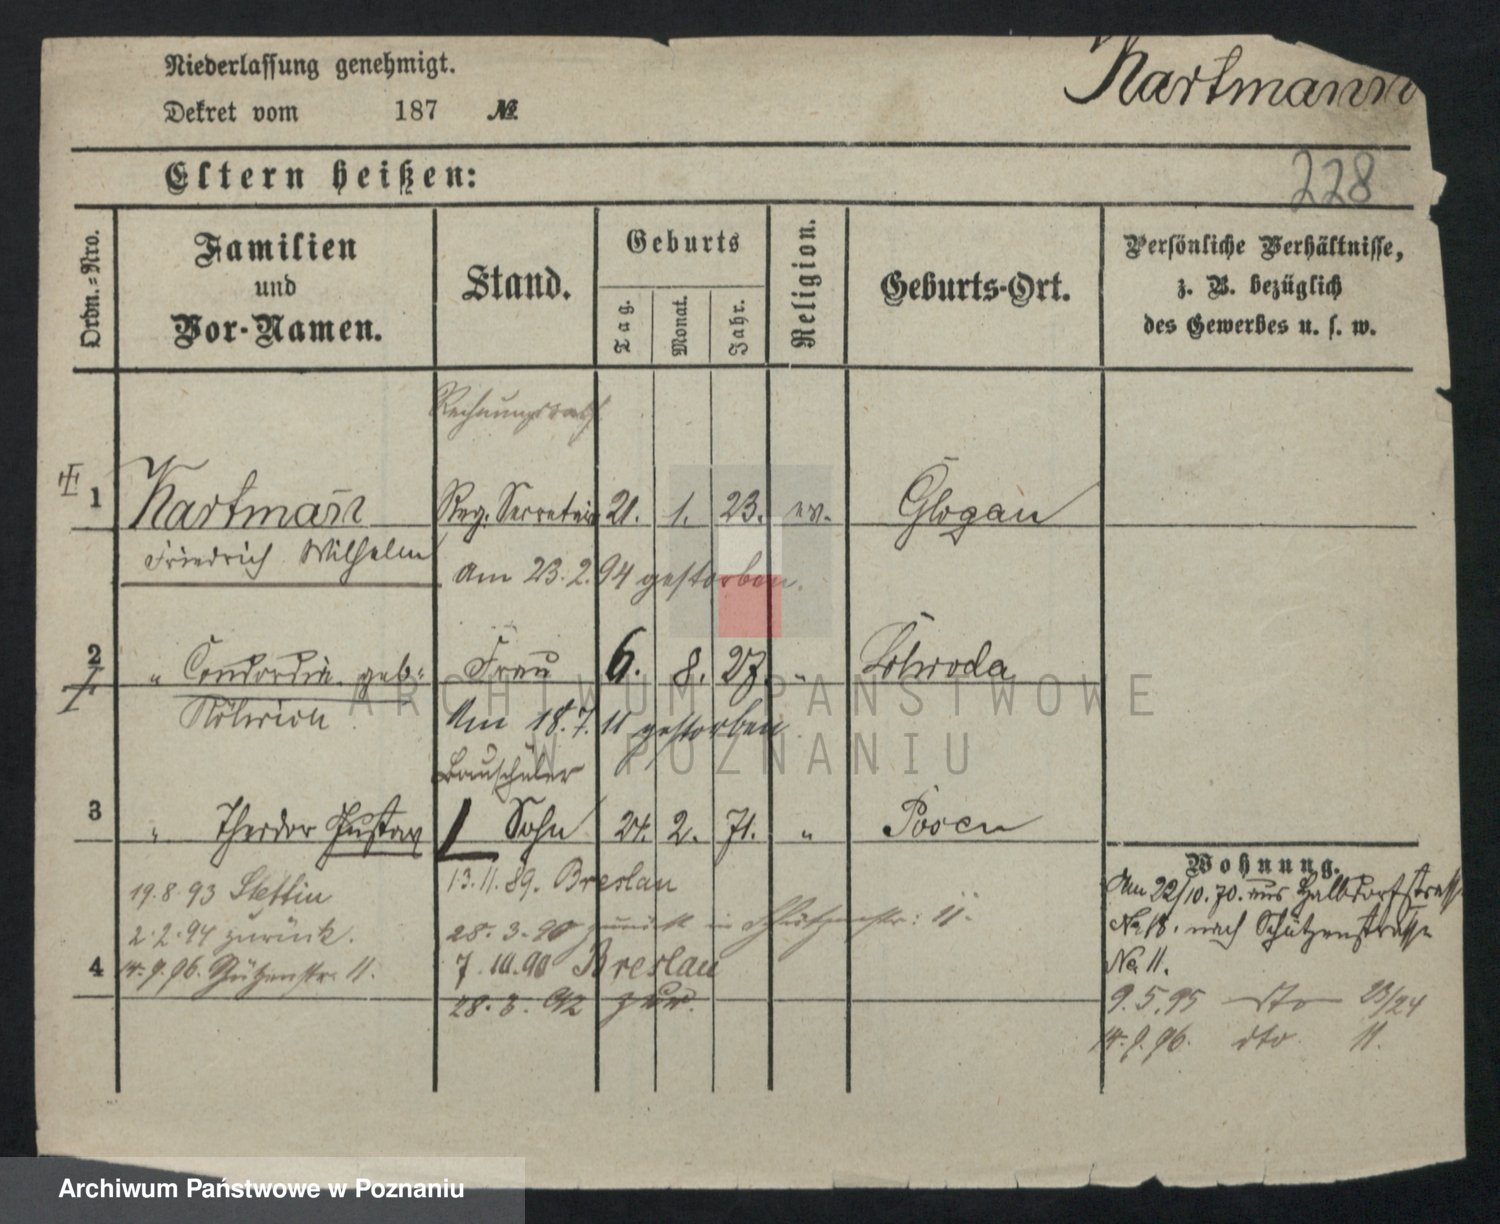 Niederlassung genehmigt.
Dekret vom 187 №
Hartmann
228
Eltern heißen:
Ordn.=Nro.
Familien und Vor-Namen.
Stand.
Geburts
Tag.
Monat.
Jahr.
Religion.
Geburts-Ort.
Persönliche Verhältnisse,
z. B. bezüglich
des Gewerbes u. s. w.
Rechnungsrath
1 Hartmann Reg. Secretair 21. 1. 23. ev. Glogau
Friedrich Wilhelm am 23.2.94 gestorben.
2 " Concordia geb: Frau 6. 8. 27. "
Am 18.7.11 gestorben
Bauschüler
3 " Theodor Gustav Sohn 24. 2. 71. " Posen
19.8.93 Stettin
2.2.94 zurück.
14.9.96. Schützenstr. 11.
4
13.11.89. Breslau
28.3.90 zurück in Schützenstr: 11.
7.10.90 Breslau
28.3.92 zur.
Wohnung.
Am 22/10.70. aus Halbdorfstrasse
No 18. nach Schützenstrasse
No 11.
9.5.95 dto 23/24
14.9.96. dto 11.
ARCHIWUM PAŃSTWOWE
W POZNANIU
Archiwum Państwowe w Poznaniu